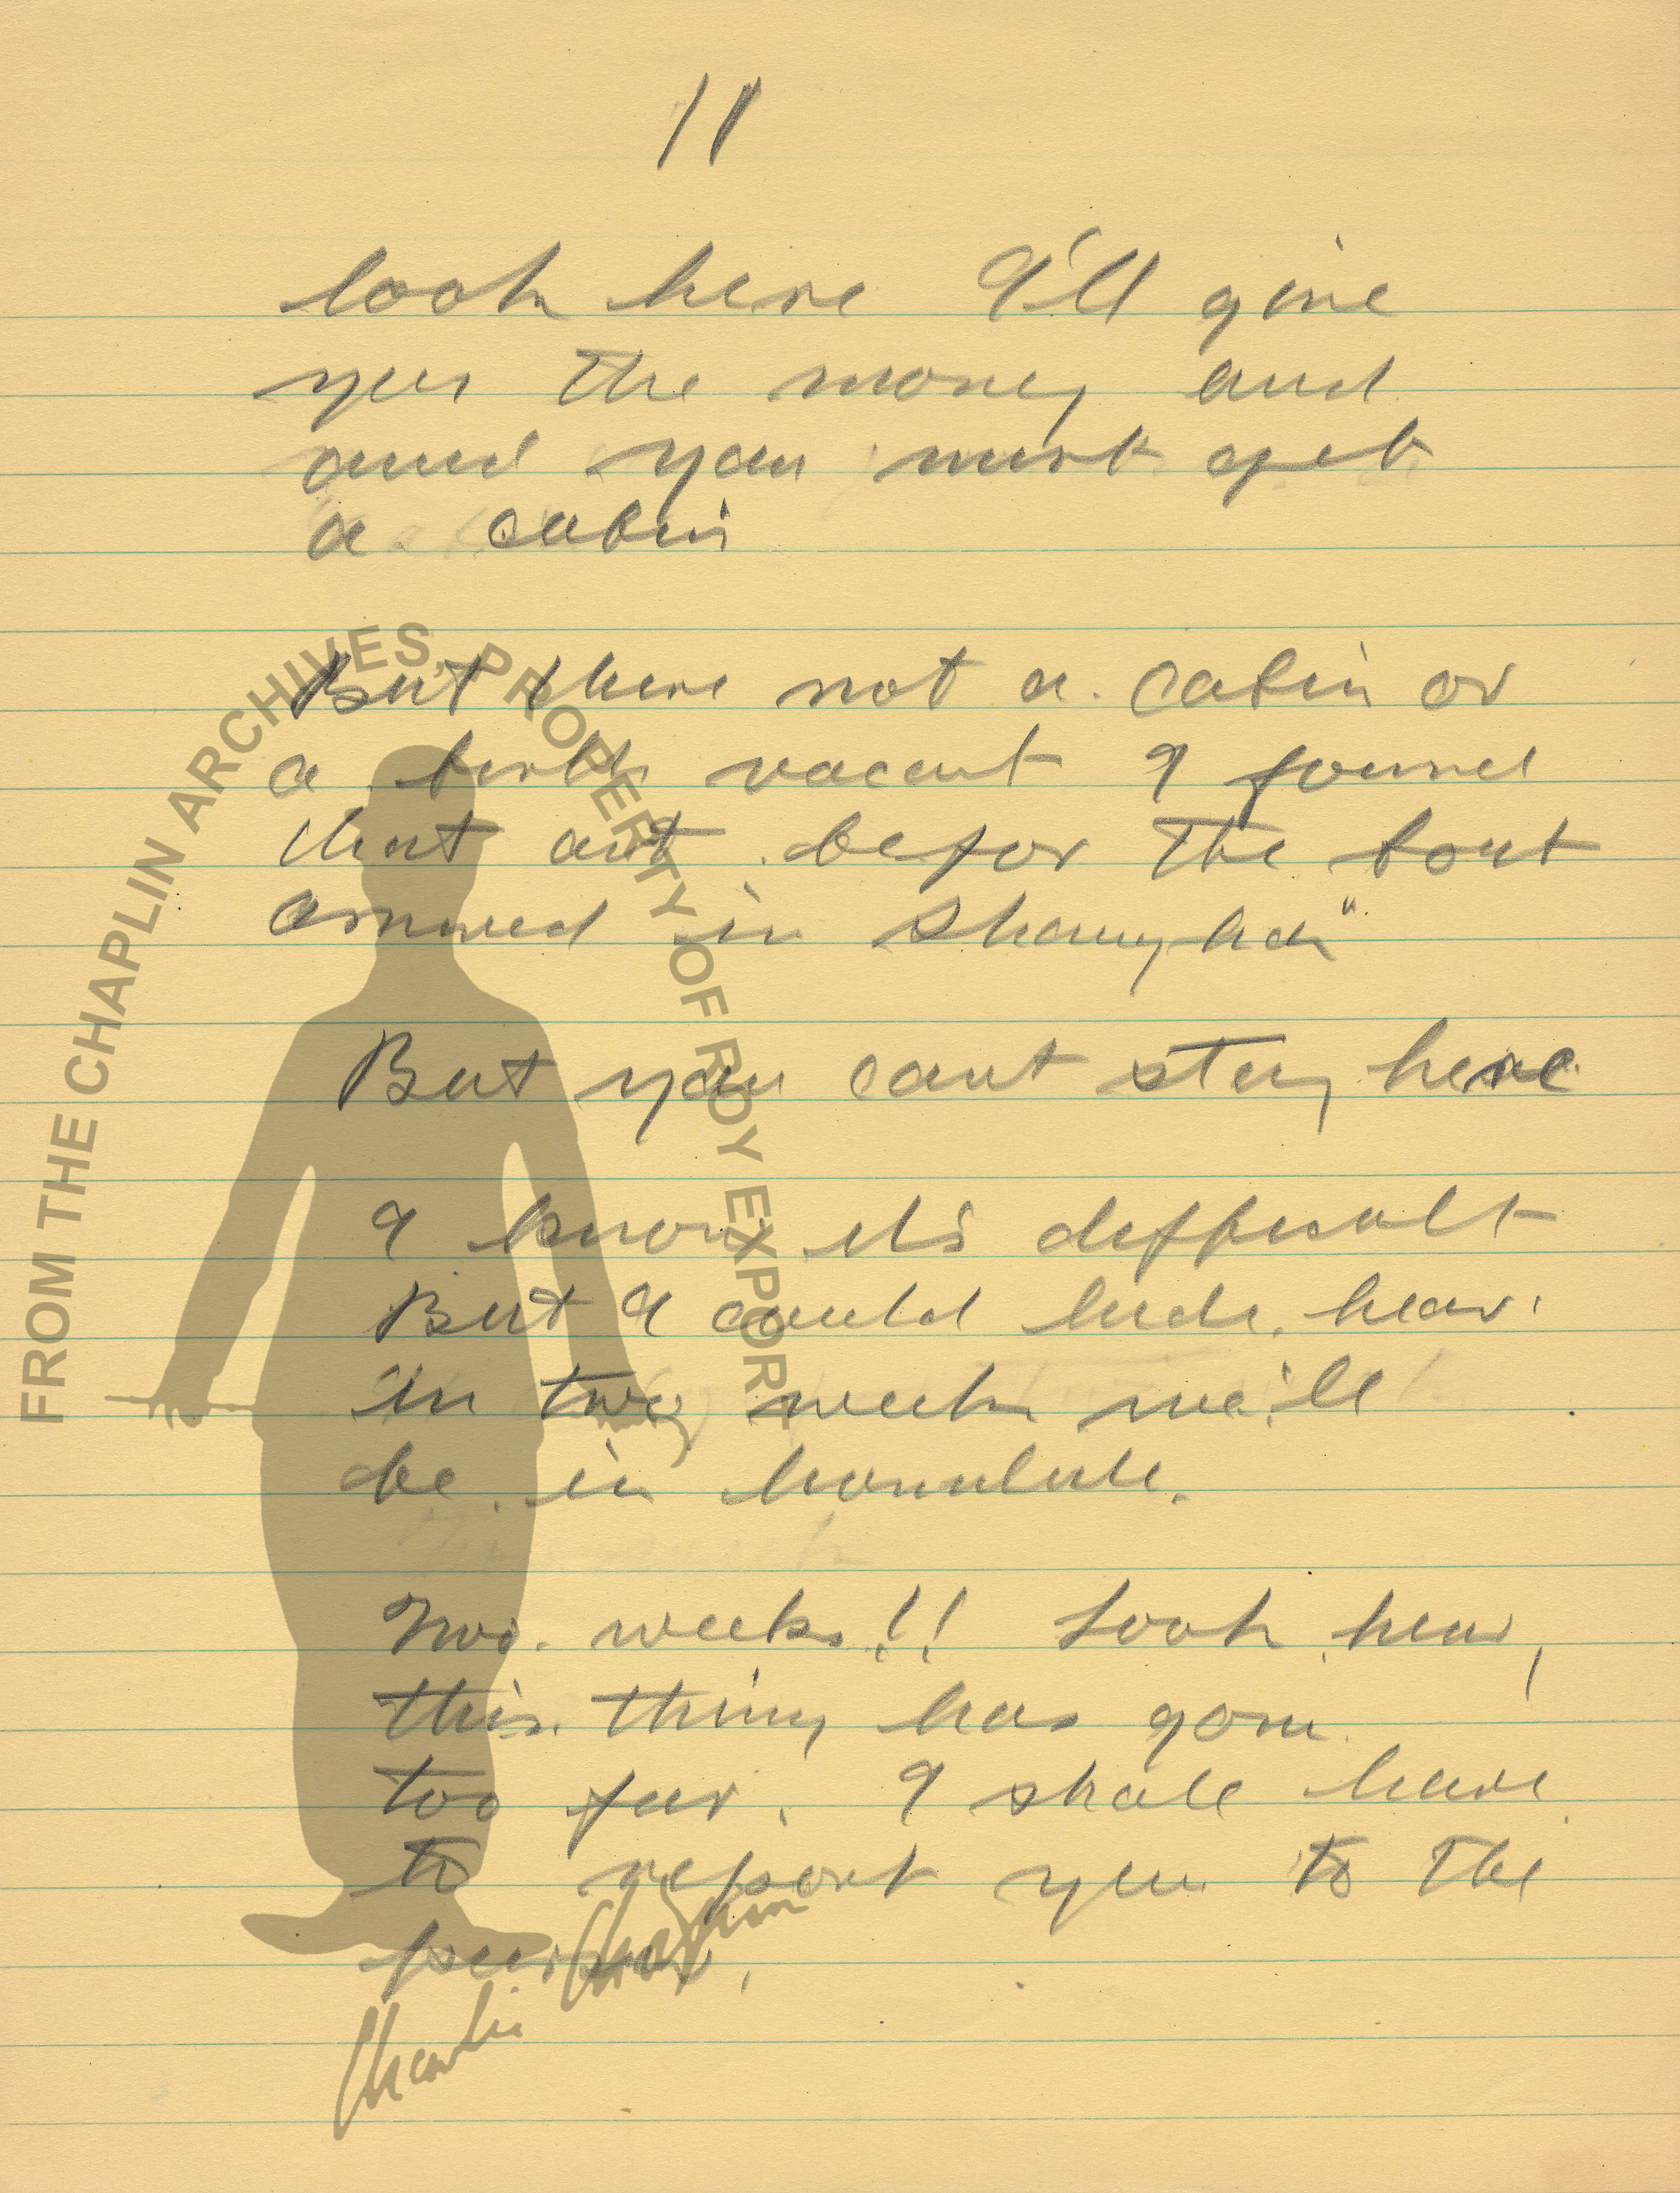 11
look here I'll give
you the money and
and you must get
a cabin
But there not a cabin or
a birth vacant I found
that out befor the boat
arrived in Shanghai"
But you cant stay here
I know its difficult
But I could hide hear
in two weeks we'll
be in honolulu.
Two weeks!! Look hear,
this thing has gone
too far. I shall have
to report you to the
purser.
FROM THE CHAPLIN ARCHIVES, PROPERTY OF ROY EXPORT
Charlie Chaplin